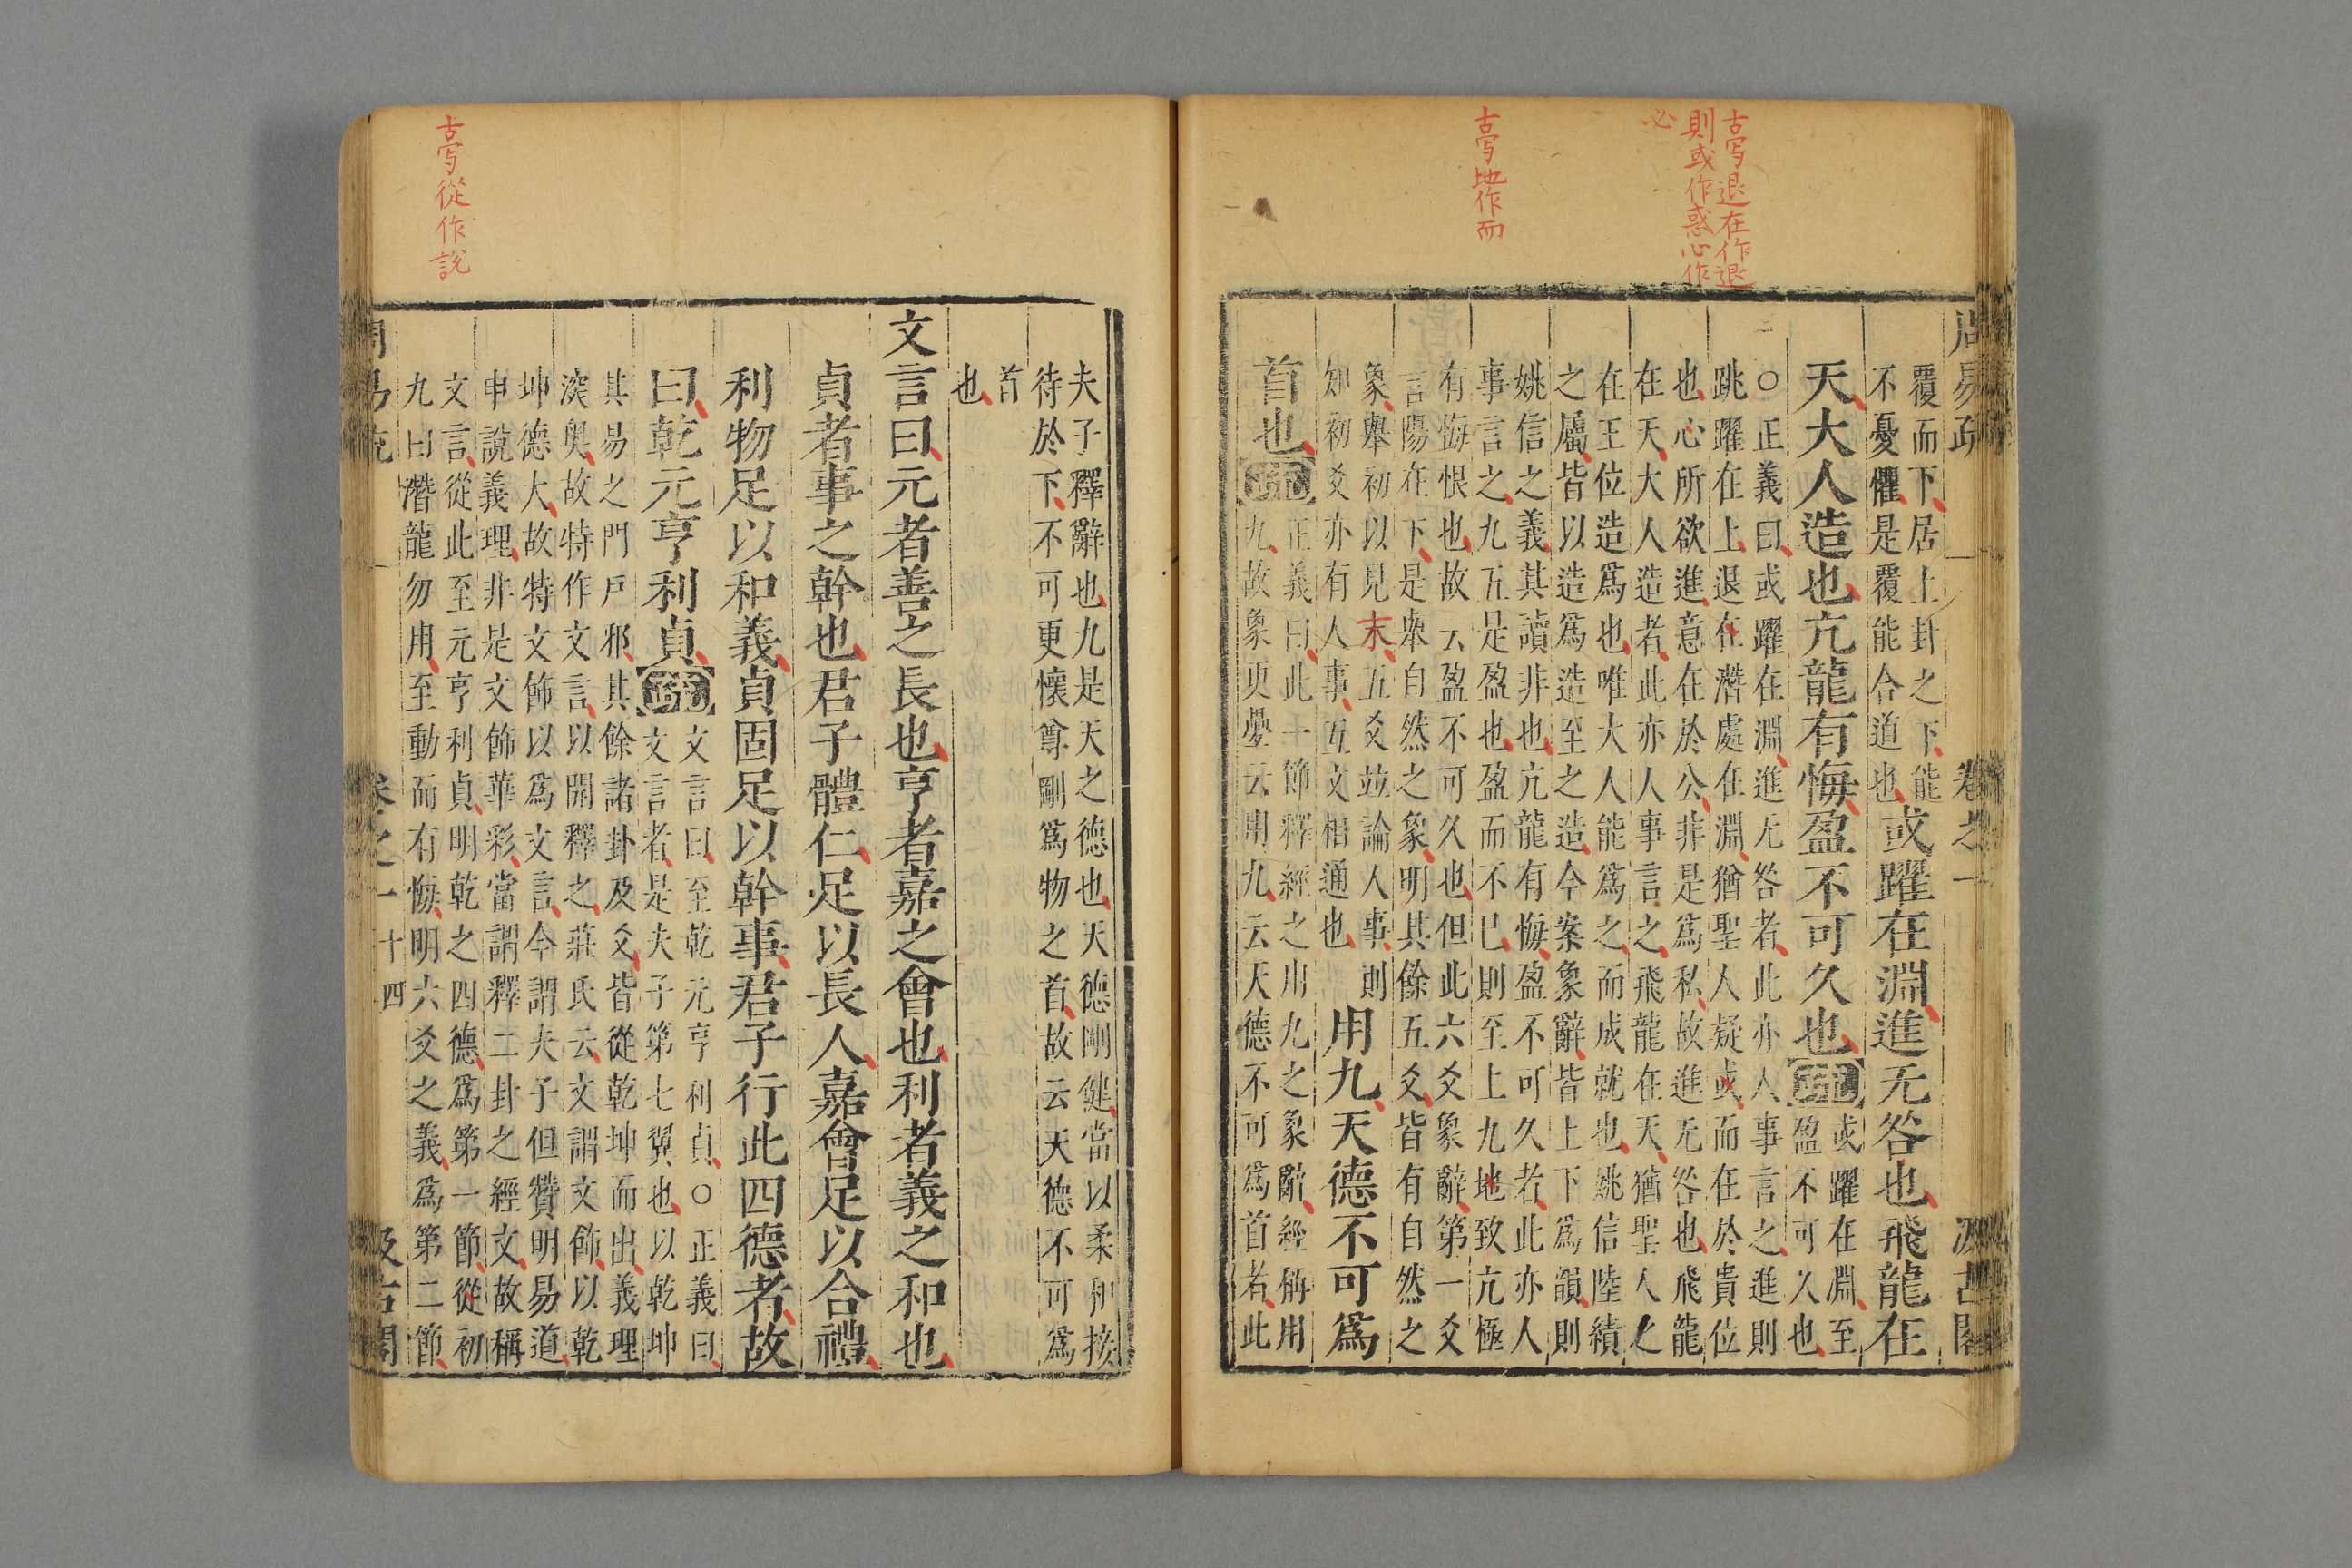 古写退在作退
則或作惑心作
必
古写地作而
周易疏　卷之一　汲古閣
覆而下居上卦之下能
不憂懼是覆能合道也
或躍在淵進无咎也飛龍在
天大人造也亢龍有悔盈不可久也疏
或躍在淵至
盈不可久也
○正義曰或躍在淵進无咎者此亦人事言之進則
跳躍在上退在潛處在淵猶聖人疑或而在於貴位
也心所欲進意在於公非是爲私故進无咎也飛龍
在天大人造者此亦人事言之飛龍在天猶聖人之
在王位造爲也唯大人能爲之而成就也姚信陸績
之屬皆以造爲造至之造今案象辭皆上下爲韻則
姚信之義其讀非也亢龍有悔盈不可久者此亦人
事言之九五是盈也盈而不已則至上九地致亢極
有悔恨也故云盈不可久也但此六爻象辭第一爻
言陽在下是舉自然之象明其餘五爻皆有自然之
象舉初以見末五爻並論人事則
知初爻亦有人事互文相通也
用九天德不可爲
首也疏
正義曰此一節釋經之用九之象辭經稱用
九故象更疊云用九云天德不可爲首者此
古写從作説
夫子釋辭也九是天之德也天德剛健當以柔和接
待於下不可更懷尊剛爲物之首故云天德不可爲
首
也
文言曰元者善之長也亨者嘉之會也利者義之和也
貞者事之幹也君子體仁足以長人嘉會足以合禮
利物足以和義貞固足以幹事君子行此四德者故
曰乾元亨利貞疏
文言曰至乾元亨利貞○正義曰
文言者是夫子第七翼也以乾坤
其易之門戸邪其餘諸卦及爻皆從乾坤而出義理
深奥故特作文言以開釋之莊氏云文謂文飾以乾
坤德大故特文飾以爲文言今謂夫子但贊明易道
申說義理非是文飾華彩當謂釋二卦之經文故稱
文言從此至元亨利貞明乾之四德爲第一節從初
九曰潛龍勿用至動而有悔明六爻之義爲第二節
卷之一　十四